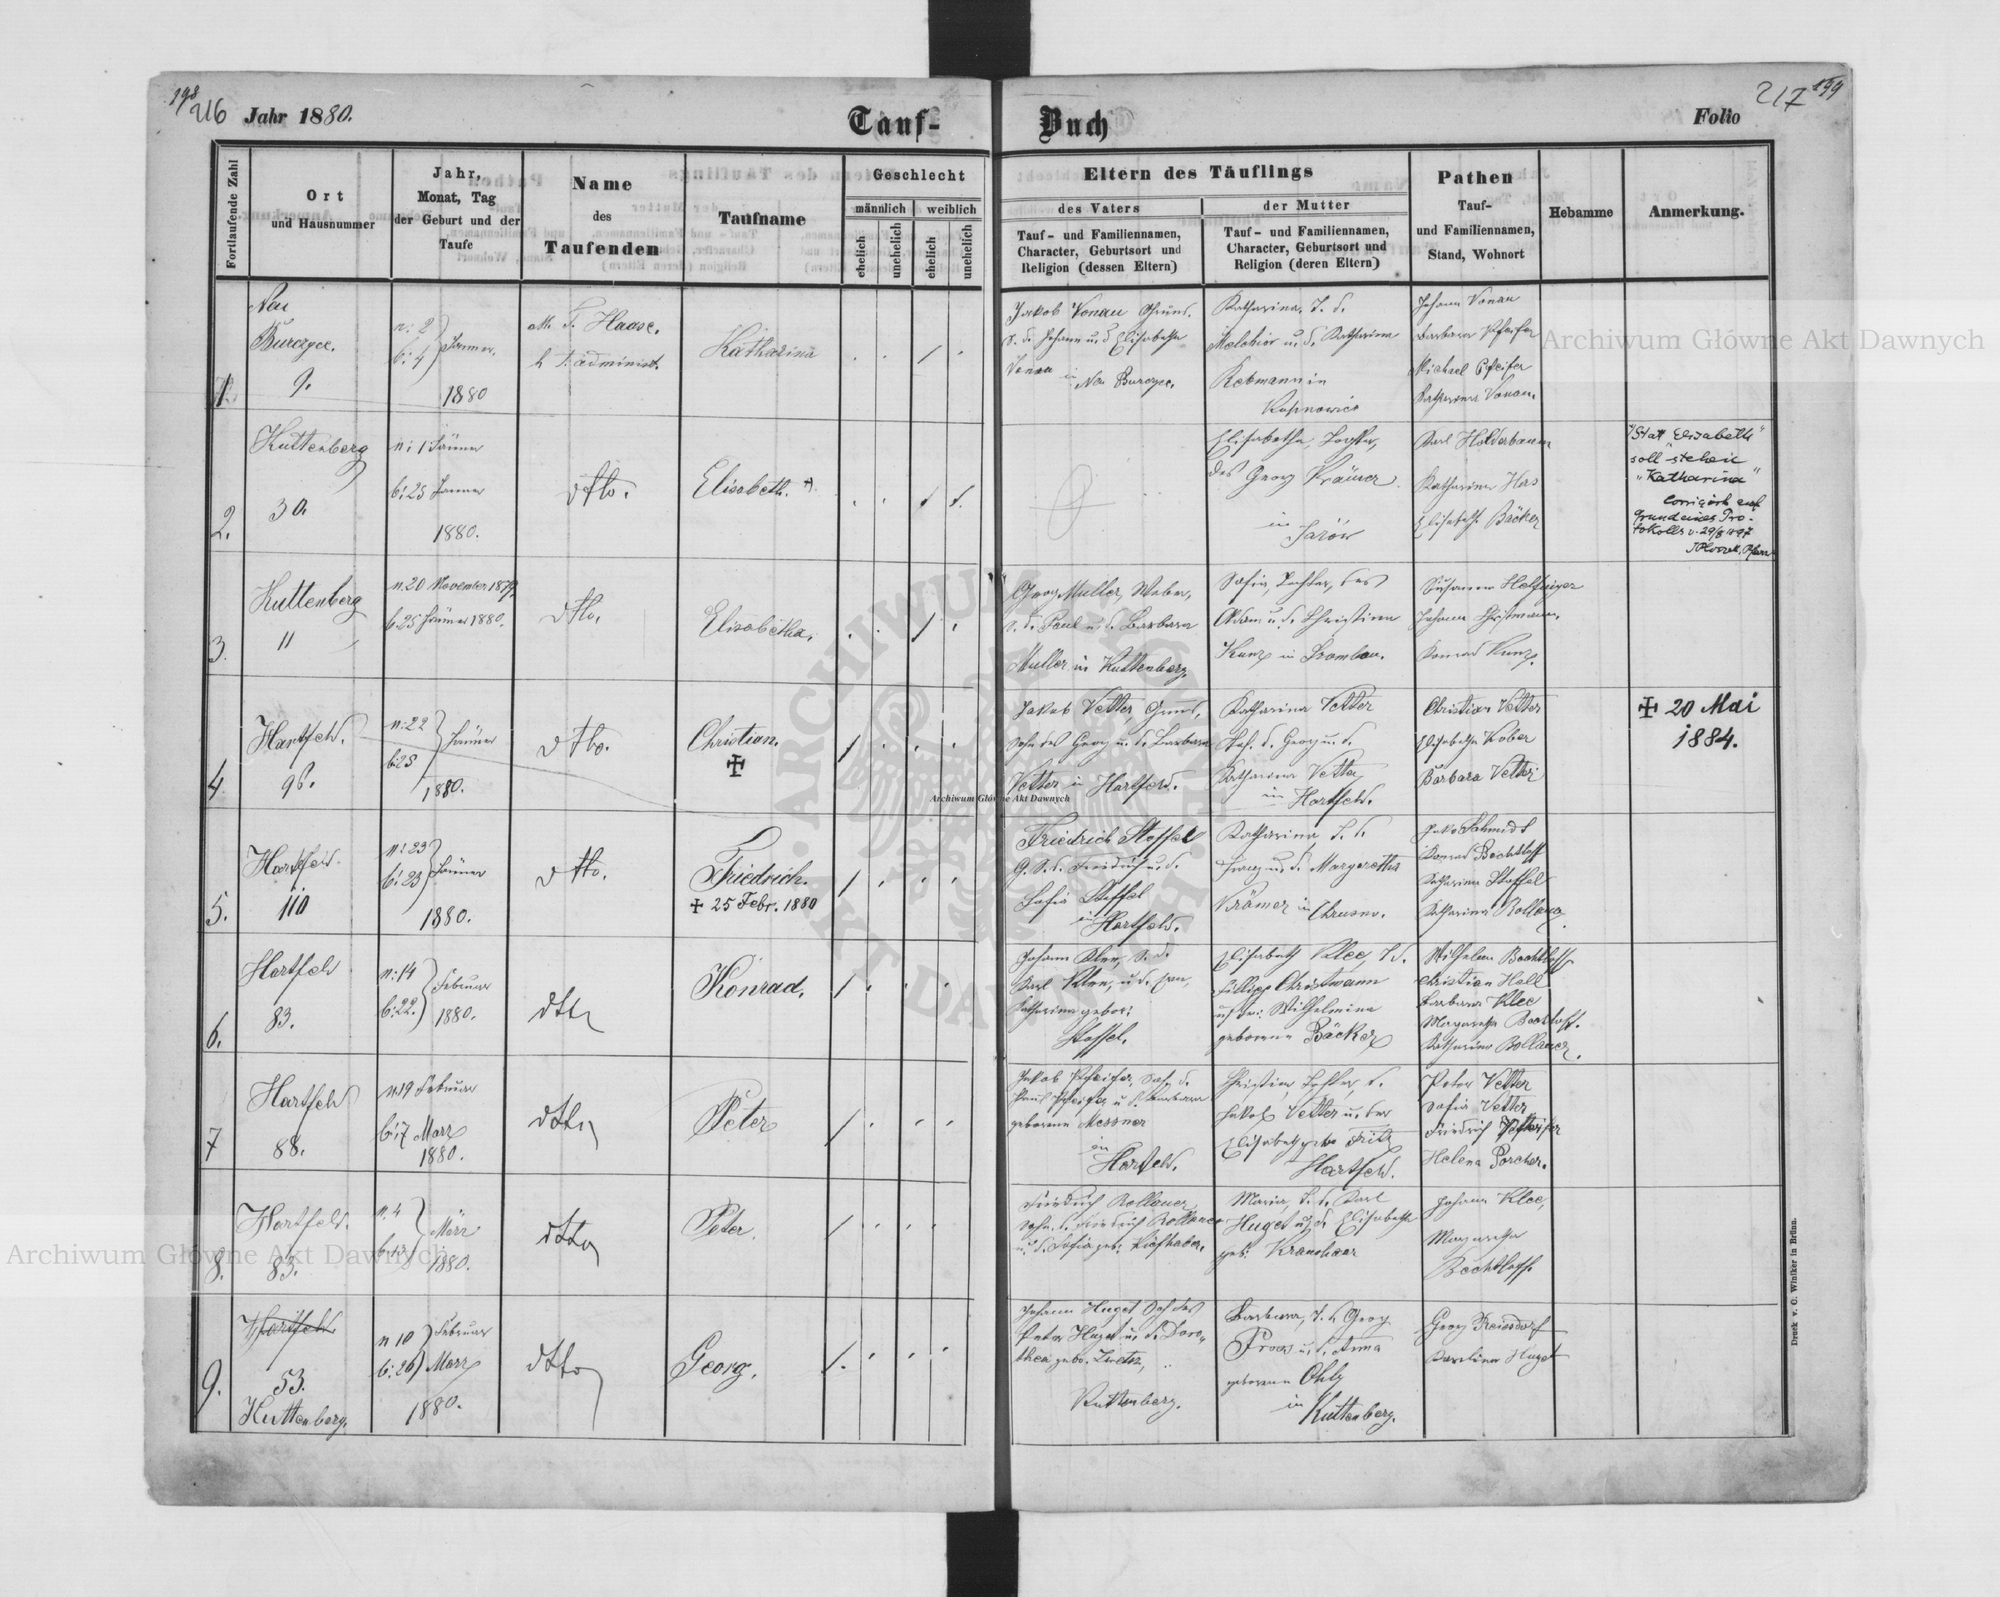 198
216 Jahr 1880.
Tauf-
Buch
Folio
217 199
Fortlaufende Zahl
Ort
und Hausnummer
Jahr,
Monat, Tag
der Geburt und der
Taufe
Name
des
Taufenden
Taufname
Geschlecht
männlich
weiblich
ehelich
unehelich
ehelich
unehelich
Eltern des Täuflings
des Vaters
Tauf- und Familiennamen,
Character, Geburtsort und
Religion (dessen Eltern)
der Mutter
Tauf- und Familiennamen,
Character, Geburtsort und
Religion (deren Eltern)
Pathen
Tauf-
und Familiennamen,
Stand, Wohnort
Hebamme
Anmerkung.
1.
Neu
Burczyce.
9.
n: 2
b: 4
Jänner.
1880
Haase.
administ.
Katharina
Jakob Vonau
S. d. Johann u. d. Elisabetha
Vonau in Neu Burczyce.
Katharina, T. d.
Melchior u. d. Katharina
Rebmann in
Johann Vonau
Barbara Pfeifer
Michael Pfeifer
Katharina Vonau
2.
Kuttenberg
30.
n: 1 Jänner
b: 25 Jänner
1880.
dtto.
Elisabeth.
Elisabetha, Tochter,
des Georg Krämer
in
Jarów
Karl Halderbaum
Katharina
Elisabeth Bäcker
"Statt "Elisabeth"
soll stehen
"Katharina"
corrigirt auf
Grund eines Pro-
tokolls v. 29/8 1897
3.
Kuttenberg
11
n. 20 November 1879.
b. 25 Jänner 1880.
dtto.
Elisabetha.
Georg Muller, Weber,
S. d. Paul u. d. Barbara
Muller in Kuttenberg.
Sofia, Tochter, des
Adam u. d. Christina
Kunz in
Susanna
Johann Christmann,
Konrad Kunz.
4.
Hartfeld.
96.
n: 22
b: 25
Jänner
1880.
dtto.
Christian.
Jakob Vetter,
Sohn des Georg u. d. Barbara
Vetter in Hartfeld.
Katharina Vetter
d. Georg u. d.
Katharina Vetter
in Hartfeld.
Christian Vetter
Elisabetha Kober
Barbara Vetter
✠ 20 Mai
1884.
5.
Hartfeld.
110
n: 23
b: 23
Jänner
1880.
dtto.
Friedrich.
✠ 25 Febr. 1880
Friedrich Stoffel
G. S. d. Friedrich u. d.
Sofia Stoffel
in
Hartfeld.
Katharina T. d.
u. d. Margaretha
Krämer in Chrusno.
Jakob Schmidt
Konrad Bechtloff
Katharina Stoffel
Katharina Rollauer
6.
Hartfeld
83.
n: 14
b: 22.
Februar
1880.
dtto
Konrad.
Johann Klee, S. d.
Karl Klee, u. d.
Katharina gebor:
Stoffel.
Elisabeth Klee, T. d.
Fillipp Christmann
u. Wilhelmina
geborene Bäcker
Wilhelm Bechtloff
Christian Holl
Barbara Klee
Margaretha Bechtloff.
Katharina Rollauer.
7
Hartfeld
88.
n. 19 Februar
b: 17 März
1880.
dtto
Peter
Jakob Pfeifer, Sohn d.
Paul Pfeifer u. d. Barbara
geborene Messner
in
Hartfeld.
Christina, Tochter, d.
Jakob Vetter u. der
Fritz
Hartfeld.
Peter Vetter
Sofia Vetter
Friedrich Pfeifer
Helena Porcher.
8.
Hartfeld.
83.
n. 4
b: 13
März
1880.
dtto
Peter.
Friedrich Rollauer,
Sohn d. Friedrich Rollauer
u. d. Sofia geb:
Maria, T. d. Karl
Huget u. d. Elisabetha
geb:
Johann Klee,
Margaretha
Bechtloff.
9.
Hartfeld
53.
Kuttenberg.
n 10 Februar
b: 26 März
1880.
dtto
Georg.
Johann Huget Sohn des
Peter Huget u. d. Doro-
thea
Kuttenberg.
Barbara, T. d. Georg
u. d. Anna
geborene Ohly
in
Kuttenberg.
Georg Reisdorf
Karolina Huget
Druck v. C. Winiker in Brünn.
Archiwum Główne Akt Dawnych
Archiwum Główne Akt Dawnych
Archiwum Główne Akt Dawnych